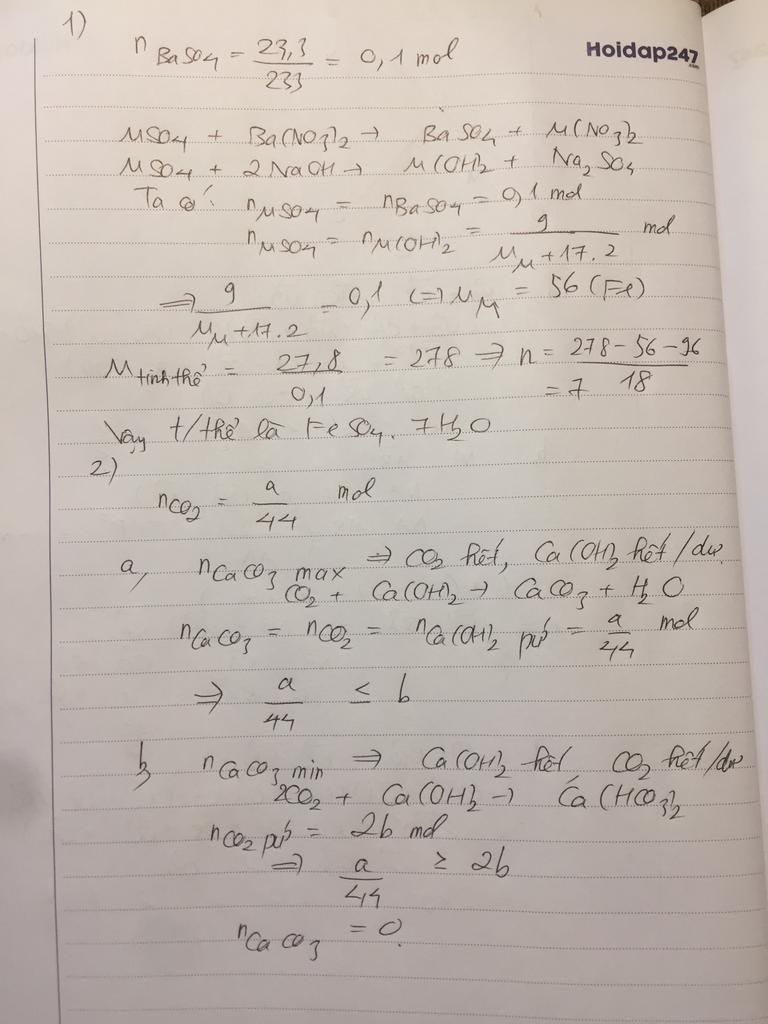 1)
n BaSO4 = 23,3/233 = 0,1 mol
Hoidap247.com
MSO4 + Ba(NO3)2 → BaSO4 + M(NO3)2
MSO4 + 2NaOH → M(OH)2 + Na2SO4
Ta có: nMSO4 = nBaSO4 = 0,1 mol
nMSO4 = nM(OH)2 = 9/(MM + 17.2) mol
⇒ 9/(MM + 17.2) = 0,1 ⇔ MM = 56 (Fe)
M tinh thể = 27,8/0,1 = 278 ⇒ n = (278 - 56 - 96)/18
= 7
Vậy t/thể là FeSO4. 7H2O
2)
nCO2 = a/44 mol
a, nCaCO3 max ⇒ CO2 hết, Ca(OH)2 hết/dư.
CO2 + Ca(OH)2 → CaCO3 + H2O
nCaCO3 = nCO2 = nCa(OH)2 pứ = a/44 mol
⇒ a/44 ≤ b
b, nCaCO3 min ⇒ Ca(OH)2 hết, CO2 hết/dư
2CO2 + Ca(OH)2 → Ca(HCO3)2
nCO2 pứ = 2b mol
⇒ a/44 ≥ 2b
nCaCO3 = 0.